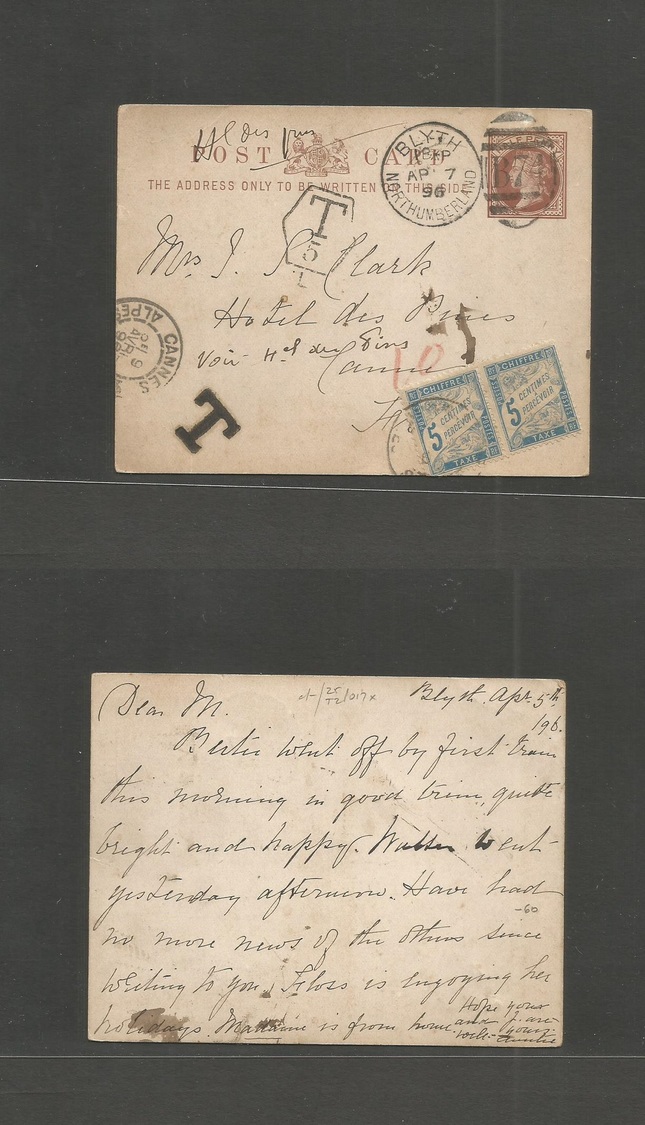 Hel des Pins
POST CARD
THE ADDRESS ONLY TO BE WRITTEN ON THIS SIDE
BLYTH
AP 7
96
NORTHUMBERLAND
B7
T
5
L
Mrs J. Clark
Hotel des Pines
Voir Hel des Pins
Cannes
10
T
CANNES
9
AVRIL
96
ALPES
CHIFFRE
5 CENTIMES
PERCEVOIR
TAXE
POSTES
CHIFFRE
5 CENTIMES
PERCEVOIR
TAXE
POSTES
Blyth. Apr. 5th
/96.
Dear M.
Bertie went off by first train
this morning in good trim, quite
bright and happy. Walter went
yesterday afternoon. Have had
-60
no more news of the others since
writing to you. Floss is enjoying her
holidays. Madame is from home
Hope you
and J. are
well. Your
Auntie